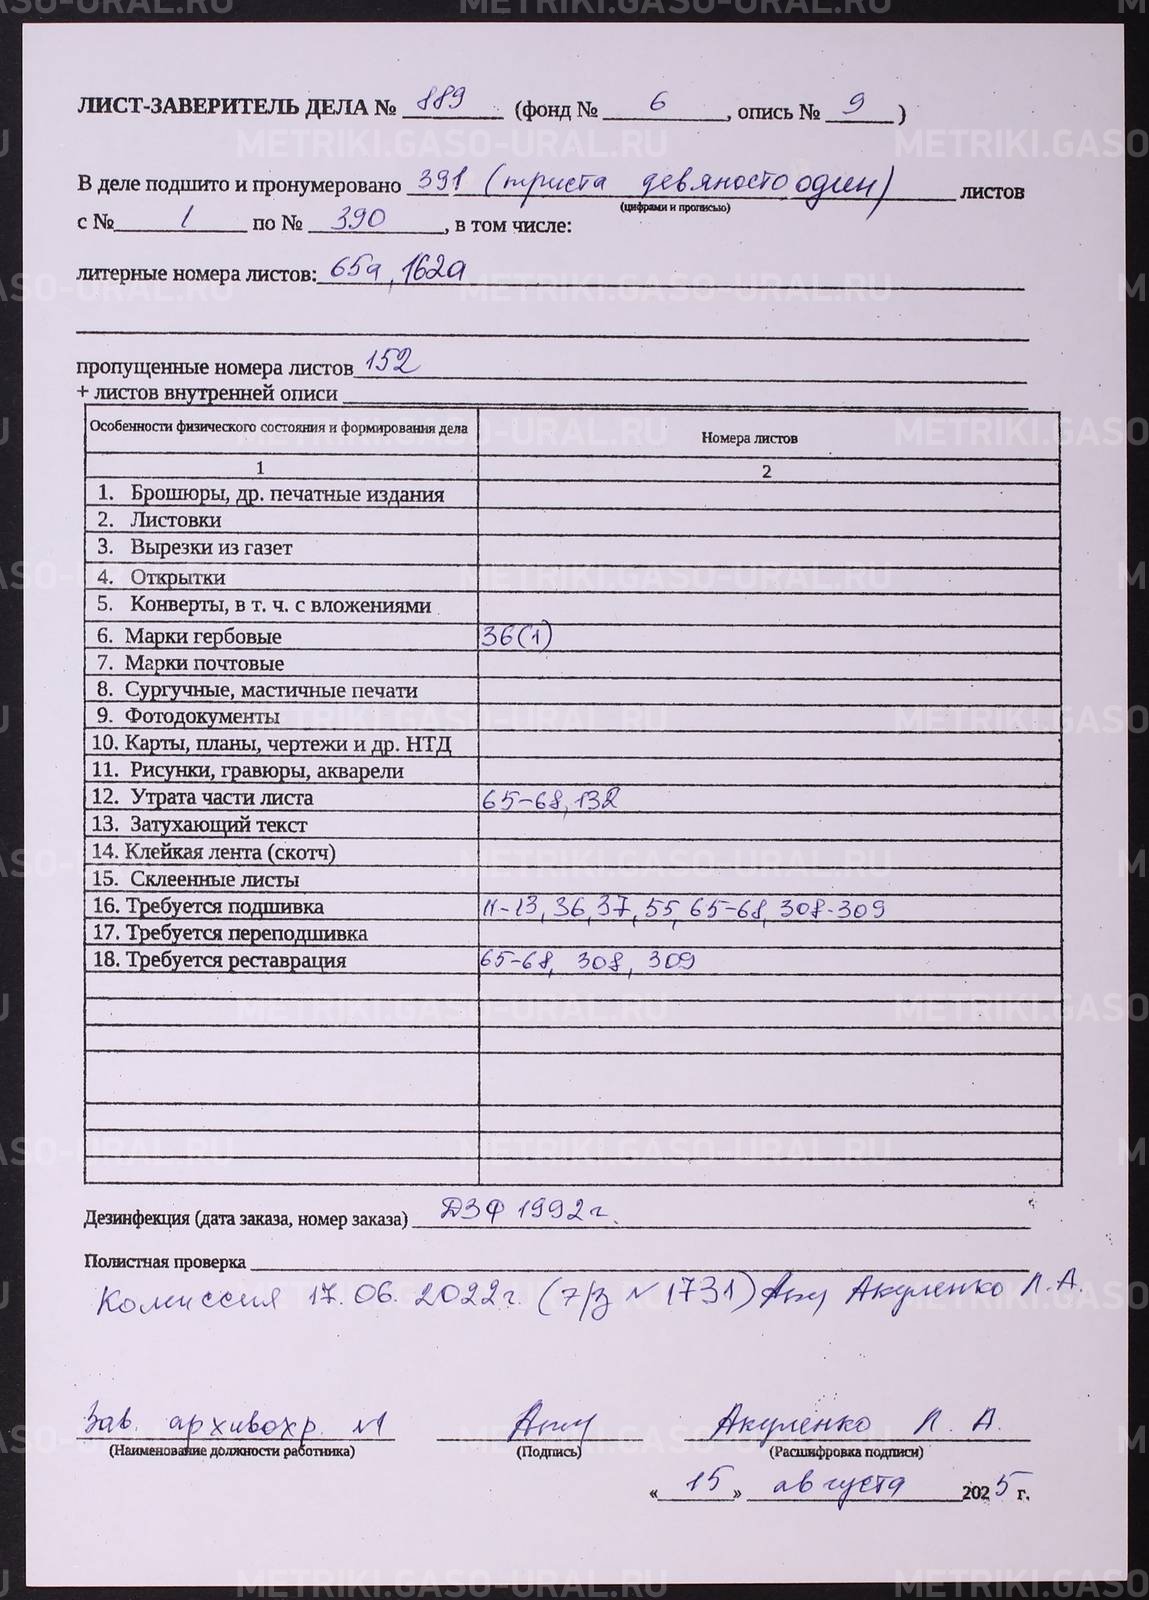 ЛИСТ-ЗАВЕРИТЕЛЬ ДЕЛА № 889 (фонд № 6, опись № 9)
В деле подшито и пронумеровано 391 (триста девяносто один) листов
(цифрами и прописью)
с № 1 по № 390, в том числе:
литерные номера листов: 65а, 162а
пропущенные номера листов 152
+ листов внутренней описи
Особенности физического состояния и формирования дела Номера листов
1 2
1. Брошюры, др. печатные издания
2. Листовки
3. Вырезки из газет
4. Открытки
5. Конверты, в т. ч. с вложениями
6. Марки гербовые 36(1)
7. Марки почтовые
8. Сургучные, мастичные печати
9. Фотодокументы
10. Карты, планы, чертежи и др. НТД
11. Рисунки, гравюры, акварели
12. Утрата части листа 65-68, 132
13. Затухающий текст
14. Клейкая лента (скотч)
15. Склеенные листы
16. Требуется подшивка 11-13, 36, 37, 55, 65-68, 308-309
17. Требуется переподшивка
18. Требуется реставрация 65-68, 308, 309
Дезинфекция (дата заказа, номер заказа) ДЗФ 1992 г.
Полистная проверка
Комиссия 17.06.2022г. (т/з № 1731) Акуленко Л.А.
Зав. архивохр. №1 Акуленко Л. А.
(Наименование должности работника) (Подпись) (Расшифровка подписи)
«15» августа 2025 г.
METRIKI.GASO-URAL.RU